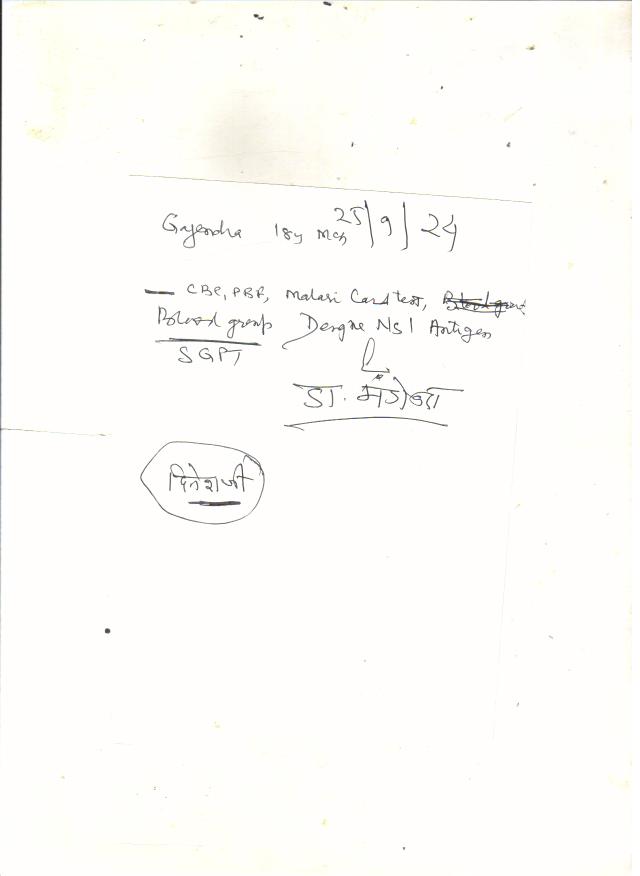 Gajendra 18y Mch 25/9/24
— CBC, PBF, Malari Card test,
Blood group Dengue Ns1 Antigen
SGPT
डा.
दिनेशजी